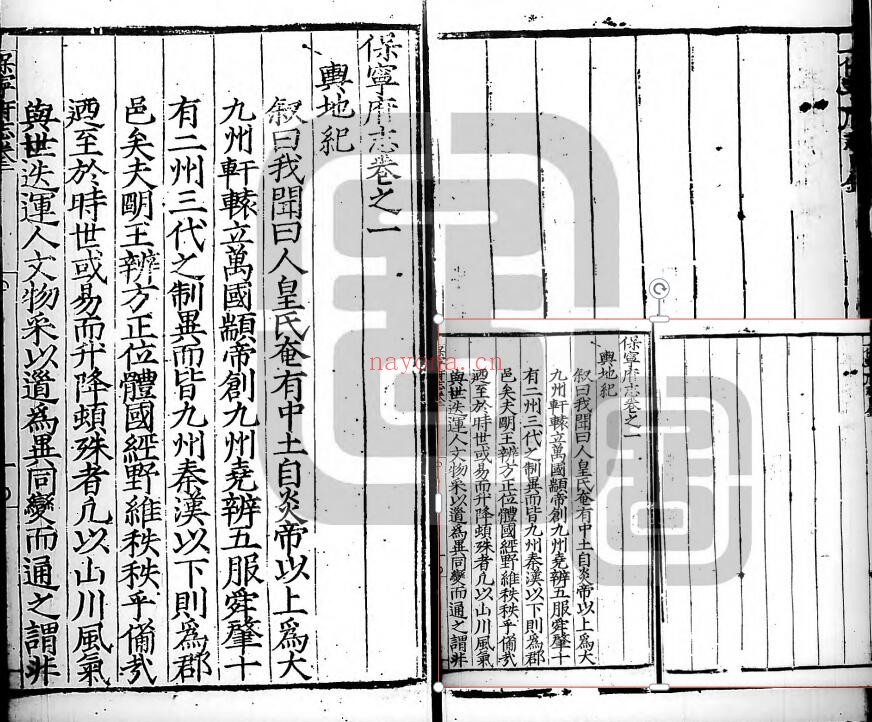 保寧府志卷之一
輿地紀
叙曰我聞曰人皇氏奄有中土自炎帝以上爲大
九州軒轅立萬國顓帝創九州堯辨五服舜肇十
有二州三代之制異而皆九州秦漢以下則爲郡
邑矣夫明王辨方正位體國經野維秩秩乎備㢤
廼至於時世或易而升降頓殊者凢以山川風氣
與世迭運人文物采以遒爲異同變而通之謂非
保寧府志卷之一
輿地紀
叙曰我聞曰人皇氏奄有中土自炎帝以上爲大
九州軒轅立萬國顓帝創九州堯辨五服舜肇十
有二州三代之制異而皆九州秦漢以下則爲郡
邑矣夫明王辨方正位體國經野維秩秩乎備㢤
廼至於時世或易而升降頓殊者凢以山川風氣
與世迭運人文物采以遒爲異同變而通之謂非
nayona.cn